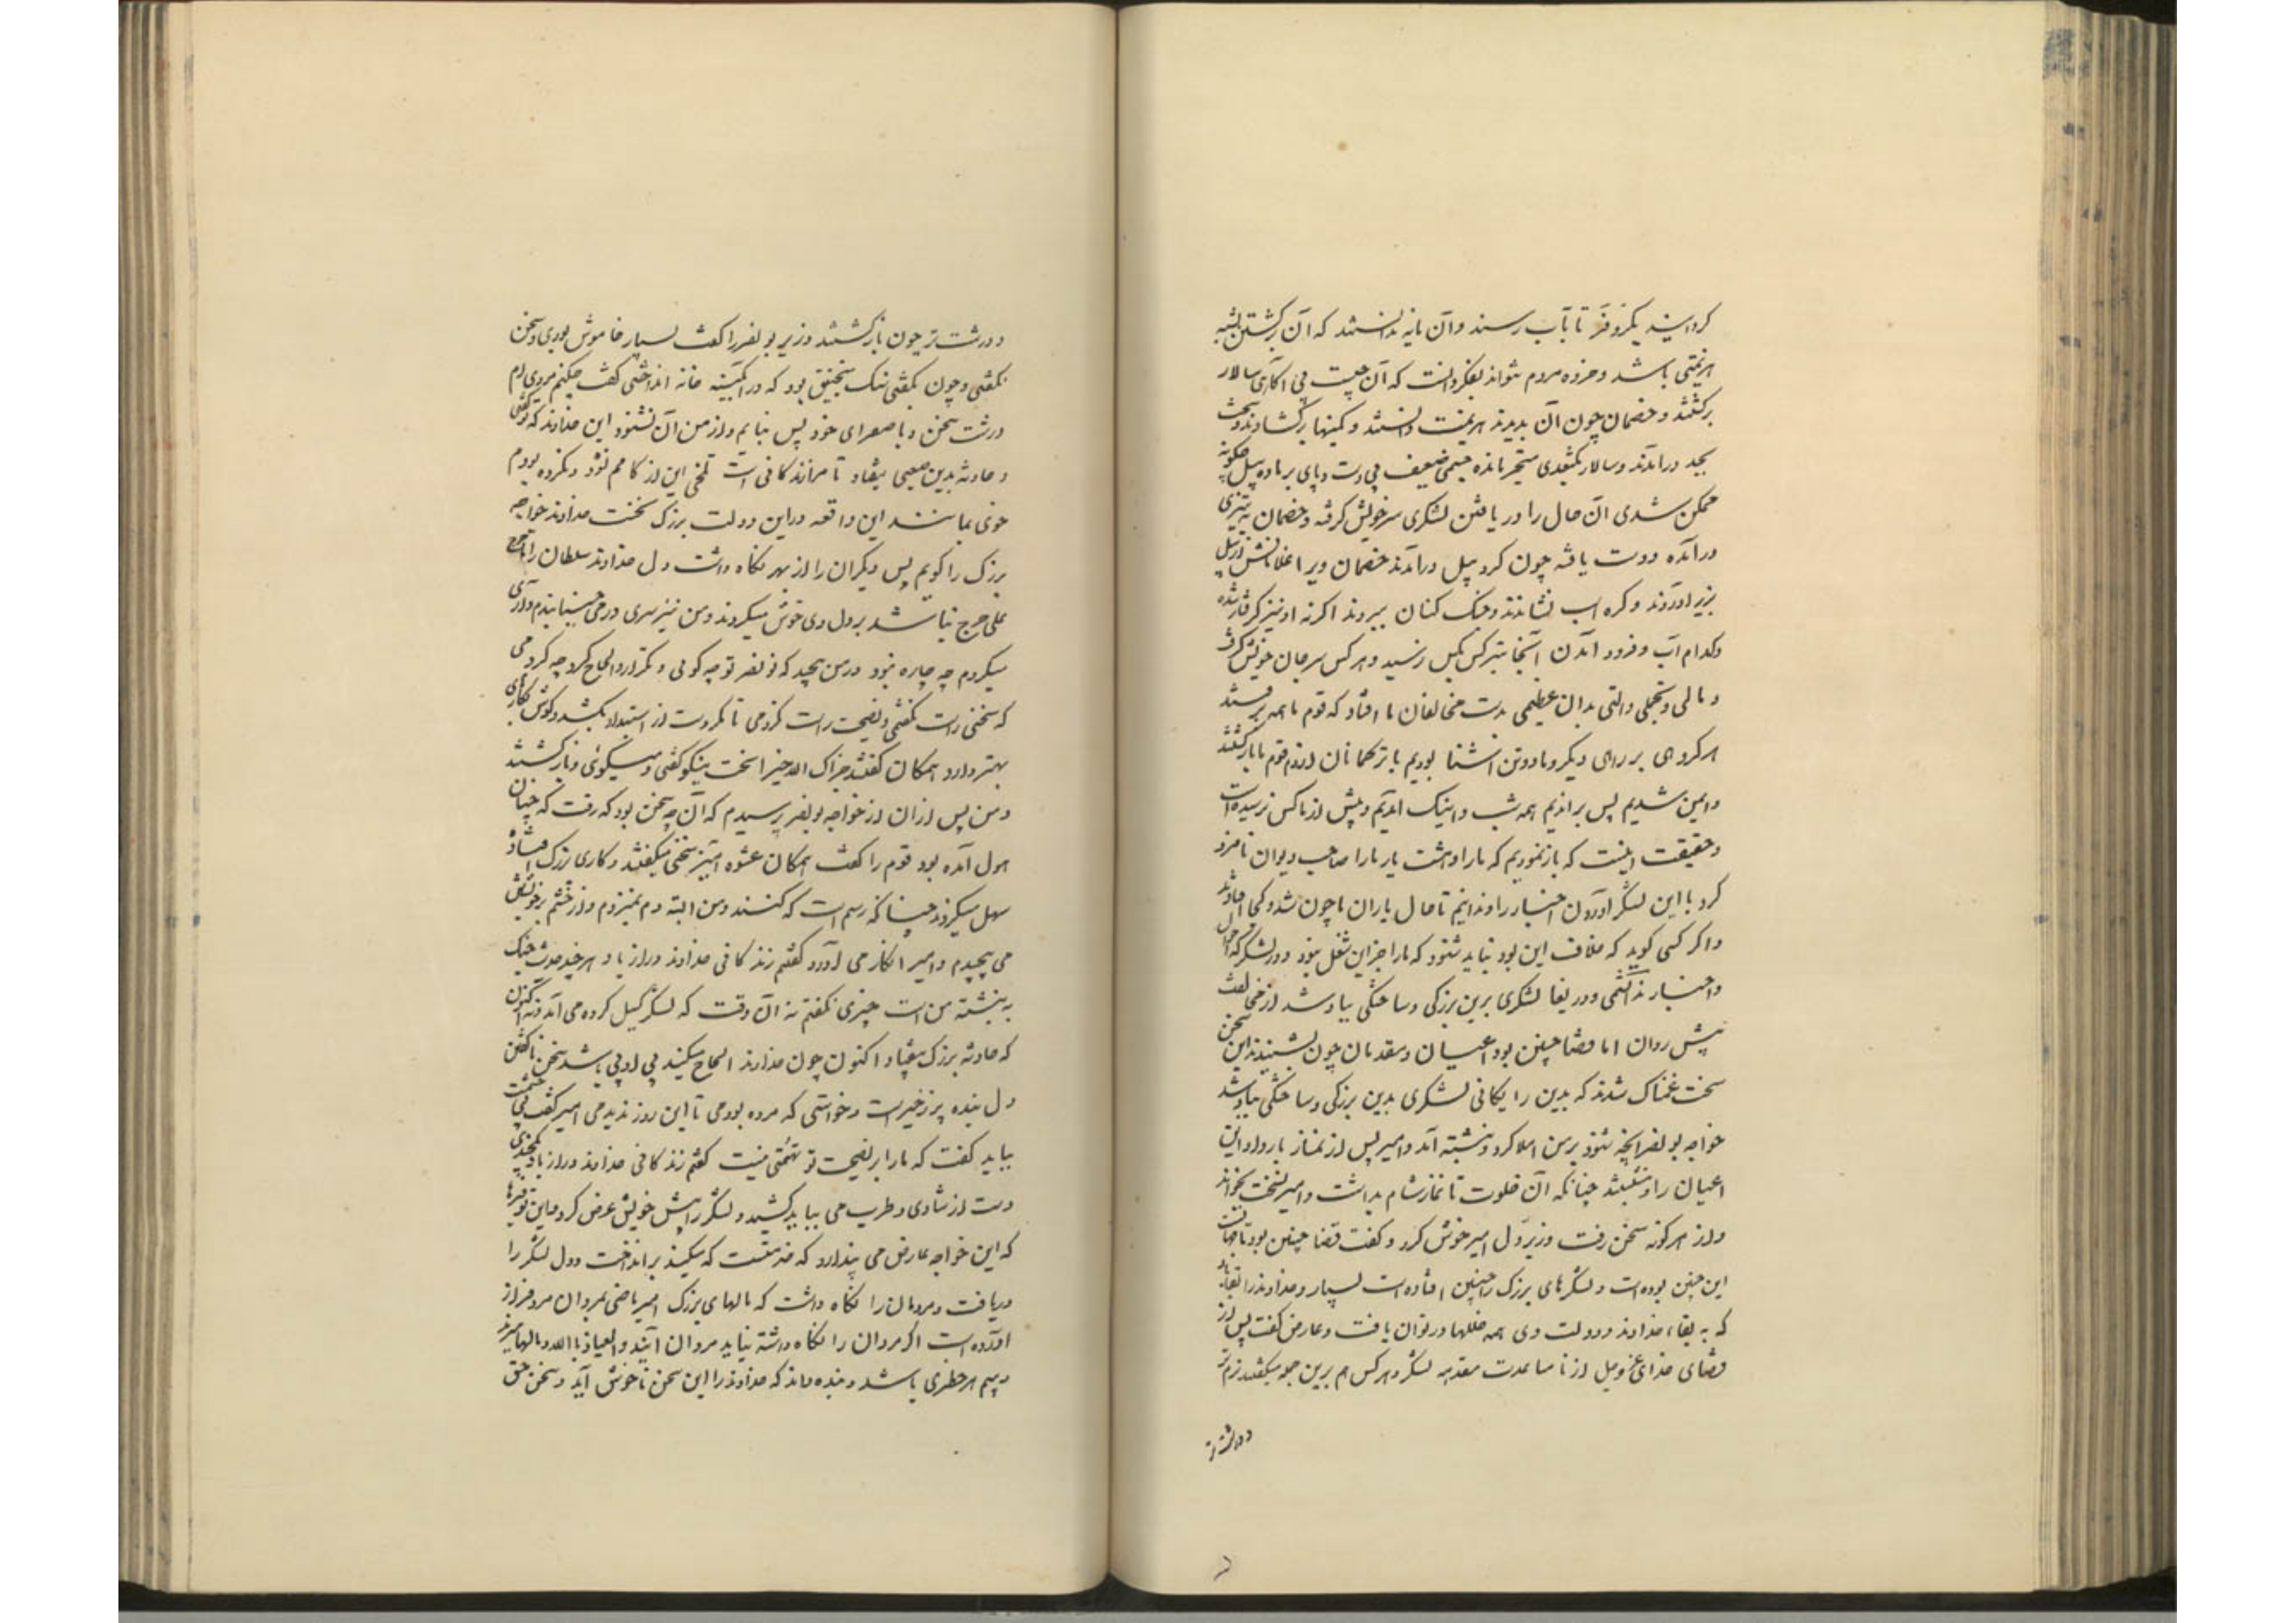 کردانیند بکروفر تا بآب رسند وآن مایه ندانستند که آن برکشتن بشبه
هزیمتی باشد و خرده مردم نتواند بفکر دانست که آن چیست بی آکاهی سالار
برکشتند و خصمان چون آن بدیدند هزیمت دانستند و کمینها برکشادند وسخت
بجد درآمدند وسالار بکتغدی متحیر مانده چشمی ضعیف بی دست وپای بر ماده پیل چکونه
ممکن شدی آن حال را دریافتن لشکری سر خویش کرفته وخصمان به تیزی
درآمده ودست یافته چون کرد پیل درآمدند خصمان ویرا غلامانش از پیل
بزیر آوردند و کره اسب نشاندند وجنک کنان ببردند اکرنه او نیز کرفتار شده
وکدام آب و فرود آمدن آنجا نیز کس بکس نرسید وهر کس سر جان خویش کرفت
و مالی وتجملی وآلتی بدان عظیمی بدست مخالفان ما افتاد که قوم ما همه برفتند
هر کروهی بر راهی دیکر وما دوتن آشنا بودیم با ترکمانان از دم قوم ما بازکشتند
وایمن شدیم پس براندیم همه شب واینک آمدیم وپیش از ما کس نرسیده است
وحقیقت اینست که بازنمودیم که مارا وهشت یار مارا صاحب دیوان نامزد
کرد با این لشکر آوردن اخبار را وندانیم تا حال یاران ما چون شد وکجا افتادند
واکر کسی کوید که خلاف این بود نباید شنود که مارا جز این شغل نبود در لشکر که احوال
واخبار بدانشمی ودریغا لشکری برین بزرکی وساختکی بباد شد از مخالفت
پیش روان اما قضا چنین بود اعیان ومقدمان چون بشنیدند این سخن
سخت غمناک شدند که بدین رایکانی لشکری بدین بزرکی وساختکی بباد شد
خواجه بونصر آنچه شنود بر من املا کرد ونبشته آمد وامیر پس از نماز بار داد این
اعیان را وبنشستند چنانکه آن خلوت تا نماز شام بداشت وامیر نسخت بخواند
واز هر کونه سخن رفت وزیر دل امیر خوش کرد و کفت قضا چنین بود تا جهانست
این چنین بوده است ولشکرهای بزرک را چنین افتاده است بسیار وخداوند را بقا باد
که به بقاء خداوند ودولت وی همه خللها در توان یافت وعارض کفت پس از
قضای خدای عزوجل از نا مساعدت مقدمه لشکر وهر کس هم برین جمله میکفتند نرم تر
ودرشت تر
ودرشت تر چون بازکشتند وزیر بونصر را کفت بسیار خاموش بودی وسخن
نکفتی وچون بکفتی سنک منجنیق بود که در آبکینه خانه انداختی کفت چکنم مردی ام
درشت سخن وبا صفرای خود بس نیایم واز من آن نشنود این خداوند که تو کفتی
وحادثه بدین صعبی بیفتاد تا مرا زندکانی است تلخی این از کامم نشود ونکرده بودم
خوی بمانند این واقعه دراین دولت بزرک نخست خداوند خواجه
بزرک را کویم پس دیکران را از بهر نکاه داشت دل خداوند سلطان را تا مرج
علی مرج نباشد بر دل وی خوش میکردند ومن نیز سری در می جنبانیدم وآری
میکردم چه چاره نبود در من پیچید که بونصر تو چه کوئی وتکرار والحاح کرد چه کردمی
که سخنی راست بکفتمی ونصیحت راست کردمی تا مکر دست از استبداد بکشد وکوش بکاری
بهتر دارد همکان کفتند جزاک الله خیرا سخت نیکو کفتی ومیکوئی وبازکشتند
ومن پس ازان از خواجه بونصر پرسیدم که آن چه سخن بود که رفت که چنان
هول آمده بود قوم را کفت همکان عشوه آمیز سخنی میکفتند وکاری بزرک افتاده
سهل میکردند چنانکه رسم است که کنند ومن البته دم نمیزدم واز خشم بر خویشتن
می پیچیدم وامیر انکار می آورد کفتم زندکانی خداوند دراز باد هرچند حدیث جنک
نه پیشه من است چیزی نکفتم نه آن وقت که لشکر کسیل کرده می آمد ونه اکنون
که حادثه بزرک بیفتاد اکنون چون خداوند الحاح میکند بی ادبی باشد سخن ناکفتن
دل بنده پر زحیرست وخواستی که مرده بودمی تا این روز ندیدمی امیر کفت بی حشمت
بباید کفت که مارا بر نصیحت تو تهمتی نیست کفتم زندکانی خداوند دراز باد یکچندی
دست از شادی وطرب می بباید کشید ولشکر را پیش خویش عرض کرد واین توفیرها
که این خواجه عارض می پندارد که خدمتست که میکند برانداخت ودل لشکر را
دریافت ومردمان را نکاه داشت که مالهای بزرک امیر ماضی بمردان مرد فراز
آورده است اکر مردان را نکاه داشته نیاید مردان آیند والعیاذ بالله ومالها ببرند
وبیم هر خطری باشد وبنده داند که خداوند را این سخن ناخوش آید وسخن حق